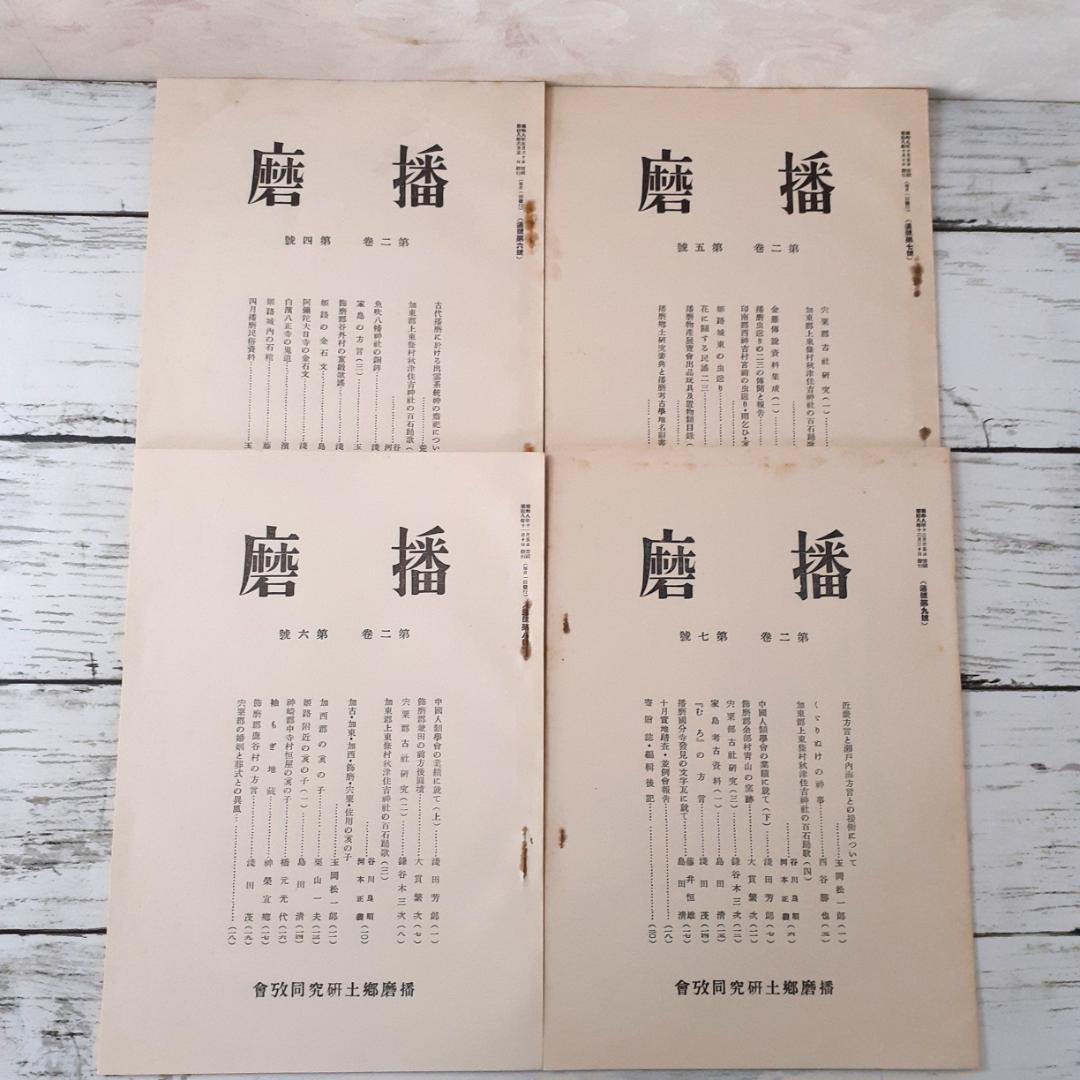 播磨
第二卷 第四號
(通號第六號)
古代播磨に於ける出雲系統神の
加東郡上東條村秋津住吉神社の百石踊歌
魚吹八幡神社の銅鉾
家島の方言(三)
飾磨郡谷外村の
姫路の金石文
阿彌陀大日寺の金石文
白濱八正寺の鬼追
姫路城內の石棺
四月播磨民俗資料
播磨
第二卷 第五號
(通號第七號)
宍粟郡古社研究(一)
加東郡上東條村秋津住吉神社の百石踊歌
金藤傳說資料集成(一)
播磨虫送りの二三の傳聞と報告
印南郡西神吉村宮前の虫送り・雨乞ひ・
姫路城東の虫送り
花に關する民謠二三
播磨物產展覽會出品玩具及置物類目錄
播磨鄕土硏究要典と播磨考古學地名
播磨
第二卷 第六號
中國人類學會の業績に就て(上) 淺田芳郎(一)
飾磨郡兼田の前方後圓墳 大賞繁次(七)
宍粟郡古社研究(二) 鎌谷木三次(八)
加東郡上東條村秋津住吉神社の百石踊歌(三)
谷川良順
河本正義(一〇)
加古・加東・加西・飾磨・宍粟・佐用の亥の子
玉岡松一郎(一二)
加西郡の亥の子 栗山一夫(一三)
姫路附近の亥の子(一) 島田淸(一四)
神崎郡中寺村恒屋の亥の子 橋元光代(一六)
袖もぎ地藏 神榮宣鄕(一七)
飾磨郡鹿谷村の方言 淺田茂(一九)
宍粟郡の婚姻と葬式との異風 (一八)
播磨鄕土硏究同攷會
播磨
第二卷 第七號
(通號第九號)
近畿方言と瀨戶內海方言との接衝について
玉岡松一郎(一)
くゞりぬけの神事 西谷勝也(五)
加東郡上東條村秋津住吉神社の百石踊歌(四)
谷川良順
河本正義(六)
中國人類學會の業績に就て(下) 淺田芳郎(九)
飾磨郡余部村靑山の窯跡 大賞繁次(一一)
宍粟郡古社研究(三) 鎌谷木三次(一二)
家島考古資料(一) 島田淸(一三)
『むろ』の方言 淺田茂(一四)
播磨國分寺發見の文字瓦に就て 藤井恒雄(一七)
十月實地踏査・並例會報告 島田淸(一八)
寄贈誌・編輯後記 (二〇)
播磨鄕土硏究同攷會